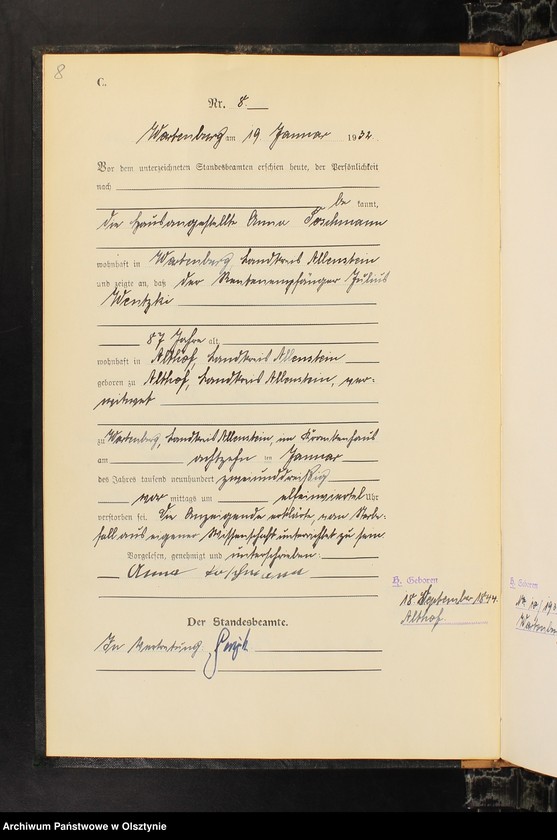 8
C.
Nr. 8
Wartenburg am 19. Januar 1932
Vor dem unterzeichneten Standesbeamten erschien heute, der Persönlichkeit
nach
be kannt,
die Hausangestellte Anna Toschmann
wohnhaft in Wartenburg, Landkreis Allenstein
und zeigte an, daß der Rentenempfänger Julius
Wentzki
87 Jahre alt
wohnhaft in Althof, Landkreis Allenstein
geboren zu Althof, Landkreis Allenstein, ver-
witwet
zu Wartenburg, Landkreis Allenstein, im Krankenhaus
am achtzehn ten Januar
des Jahres tausend neunhundert zweiunddreißig
vor mittags um elfeinviertel Uhr
verstorben sei. Die Anzeigende erklärte, vom Sterbe-
fall aus eigener Wissenschaft unterrichtet zu sein
Vorgelesen, genehmigt und unterschrieben:
Anna Toschmann
Der Standesbeamte.
In Vertretung
H. Geboren
18. September 1844.
Althof